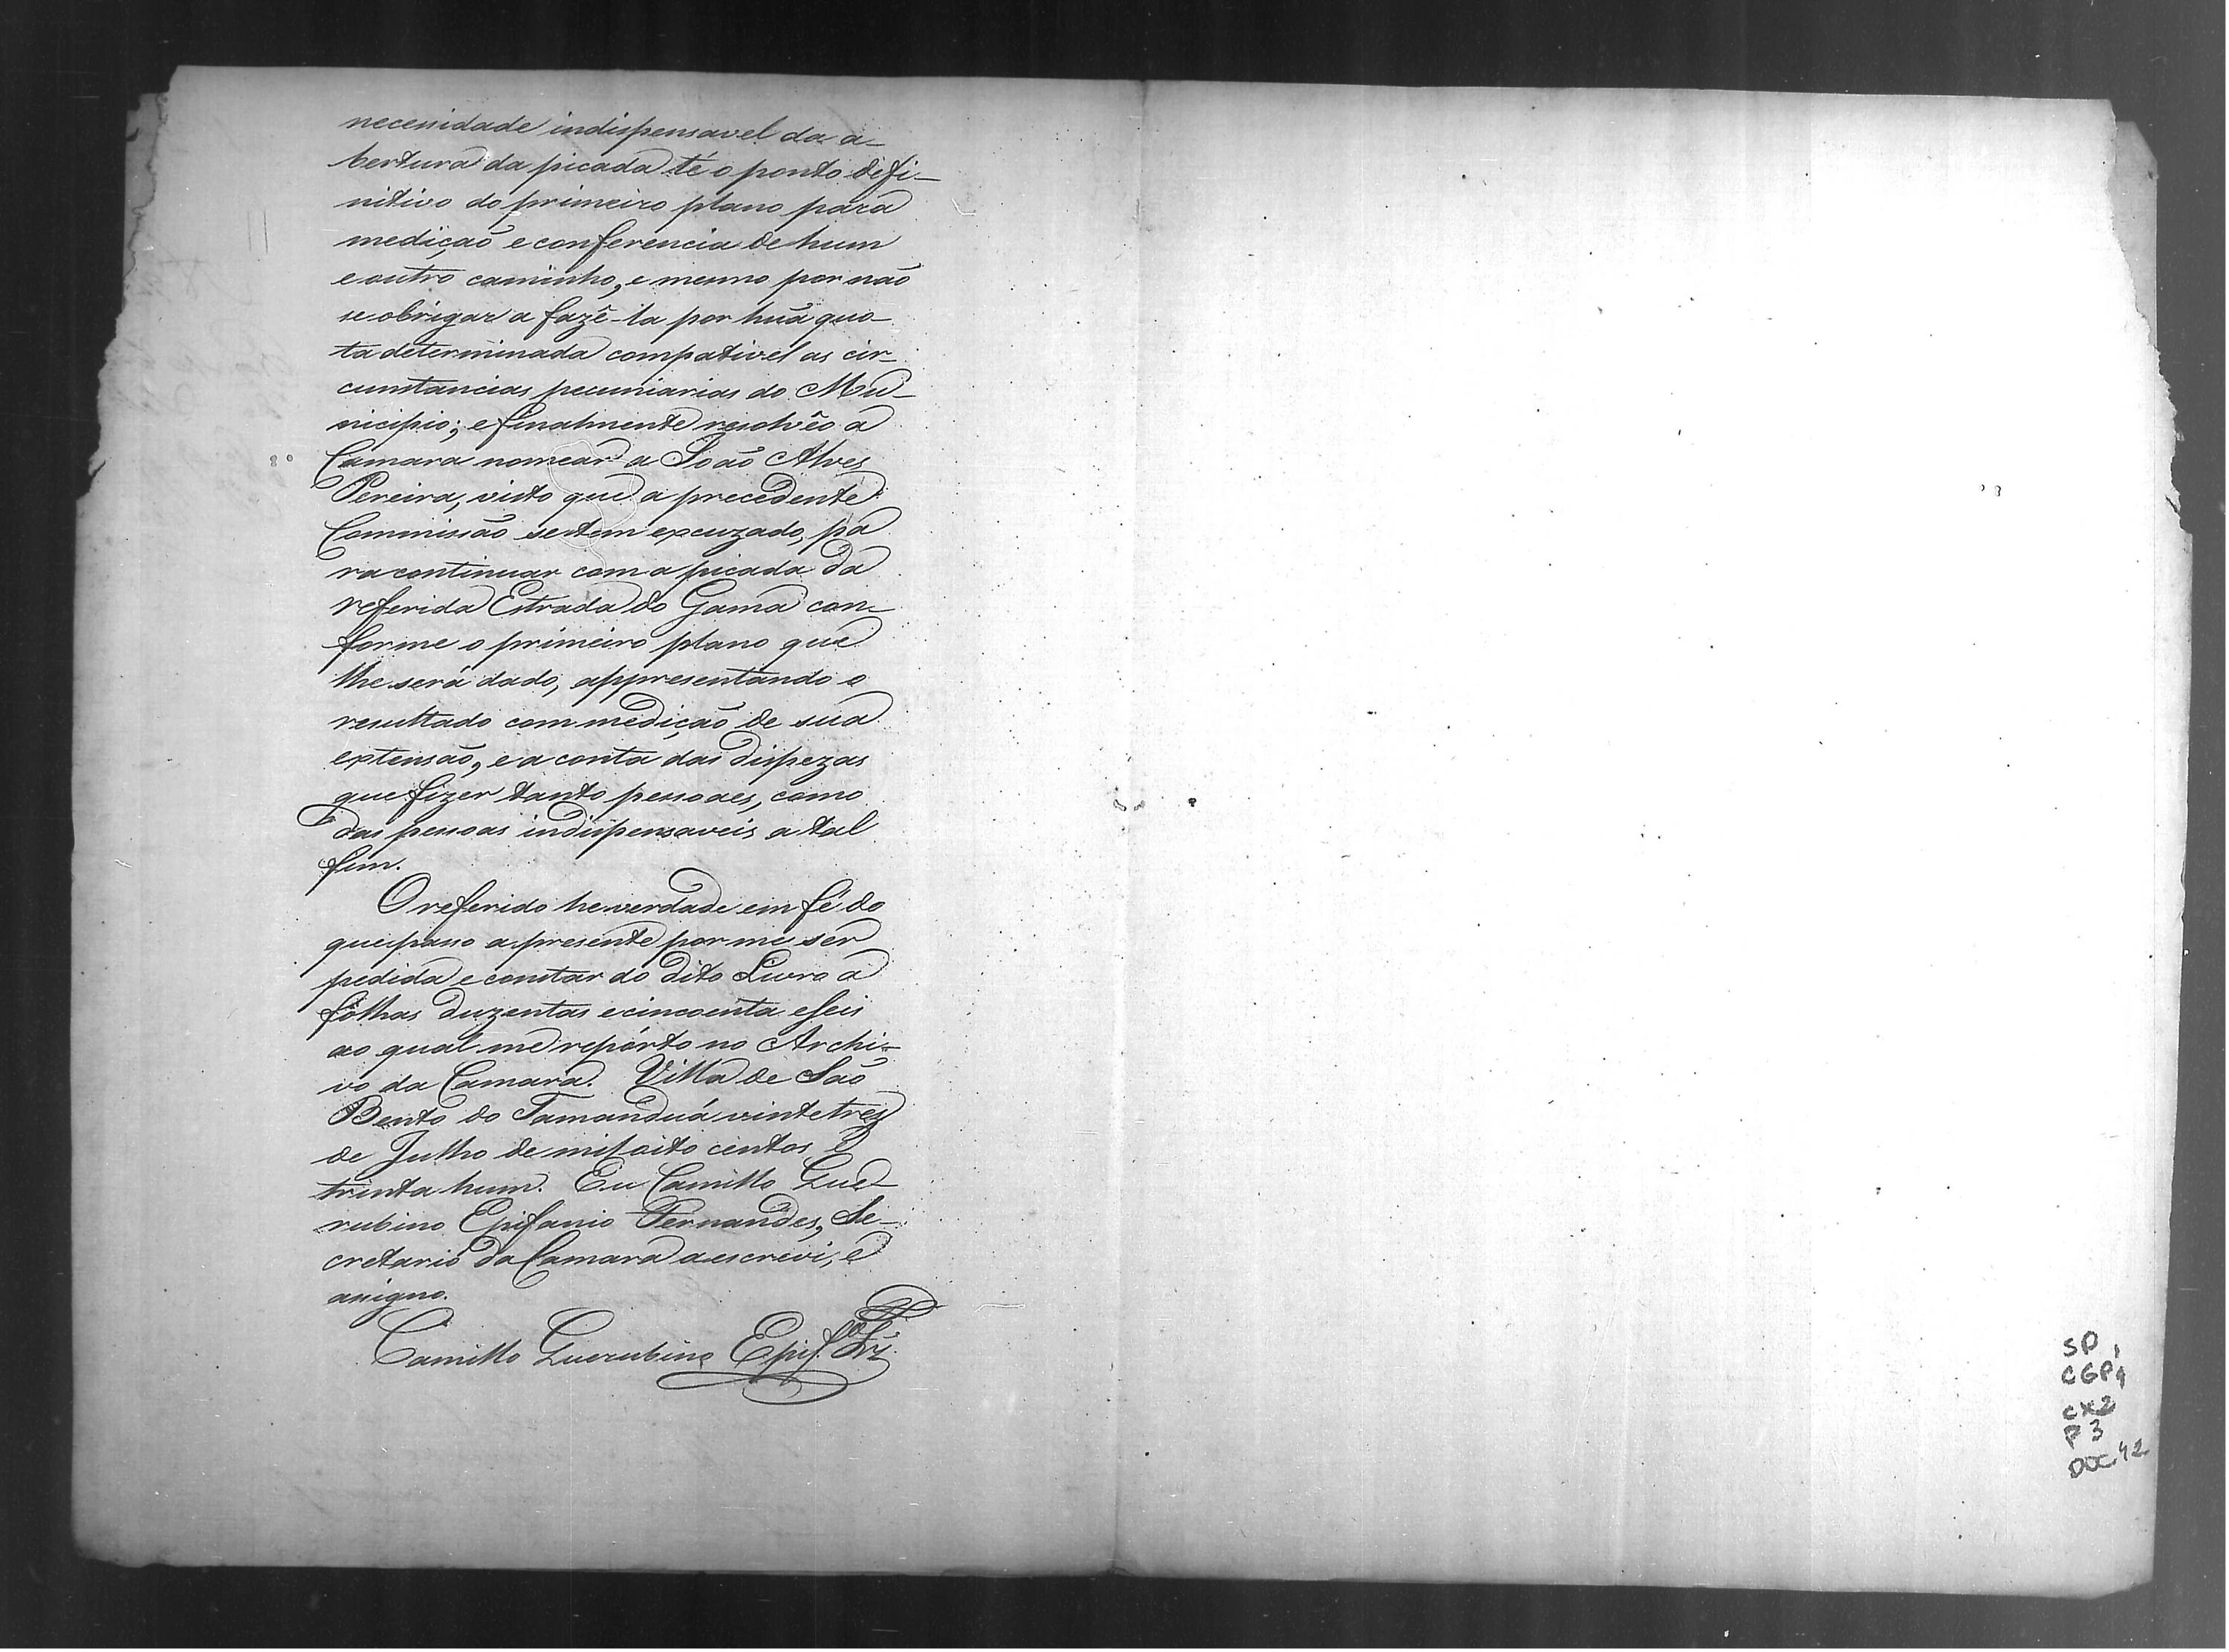 necessidade indispensavel da a-
bertura da picada té o ponto defi-
nitivo do primeiro plano para
medição e conferencia de hum
e outro caminho, e mesmo por não
se obrigar a fazê-la por huã quo-
ta determinada compativel as cir-
cunstancias pecuniarias do Mu-
nicipio; e finalmente resolvêo a
Camara nomear a João Alves
Pereira, visto que a precedente
Commissão se tem excuzado, pa
ra continuar com a picada da
referida Estrada do Gama con-
forme o primeiro plano que
lhe será dado, appresentando o
resultado com medição de sua
extensão, e a conta das dispezas
que fizer tanto pessoaes, como
das pessoas indispensaveis a tal
fim.
O referido he verdade em fé do
que passo a presente por me ser
pedida e constar do dito Livro a
fôlhas duzentas e cincoenta e seis
ao qual me repórto no Archi-
vo da Camara. Villa de São
Bento do Tamanduá vinte tres
de Julho de mil oito centos e
trinta hum. Eu Camillo Que-
rubino Epifanio Fernandes, Se-
cretario da Camara a escrevi, e
assigno.
Camillo Querubino Epif.º Frz
SP 1
CGP1
CX2
P3
DOC 42